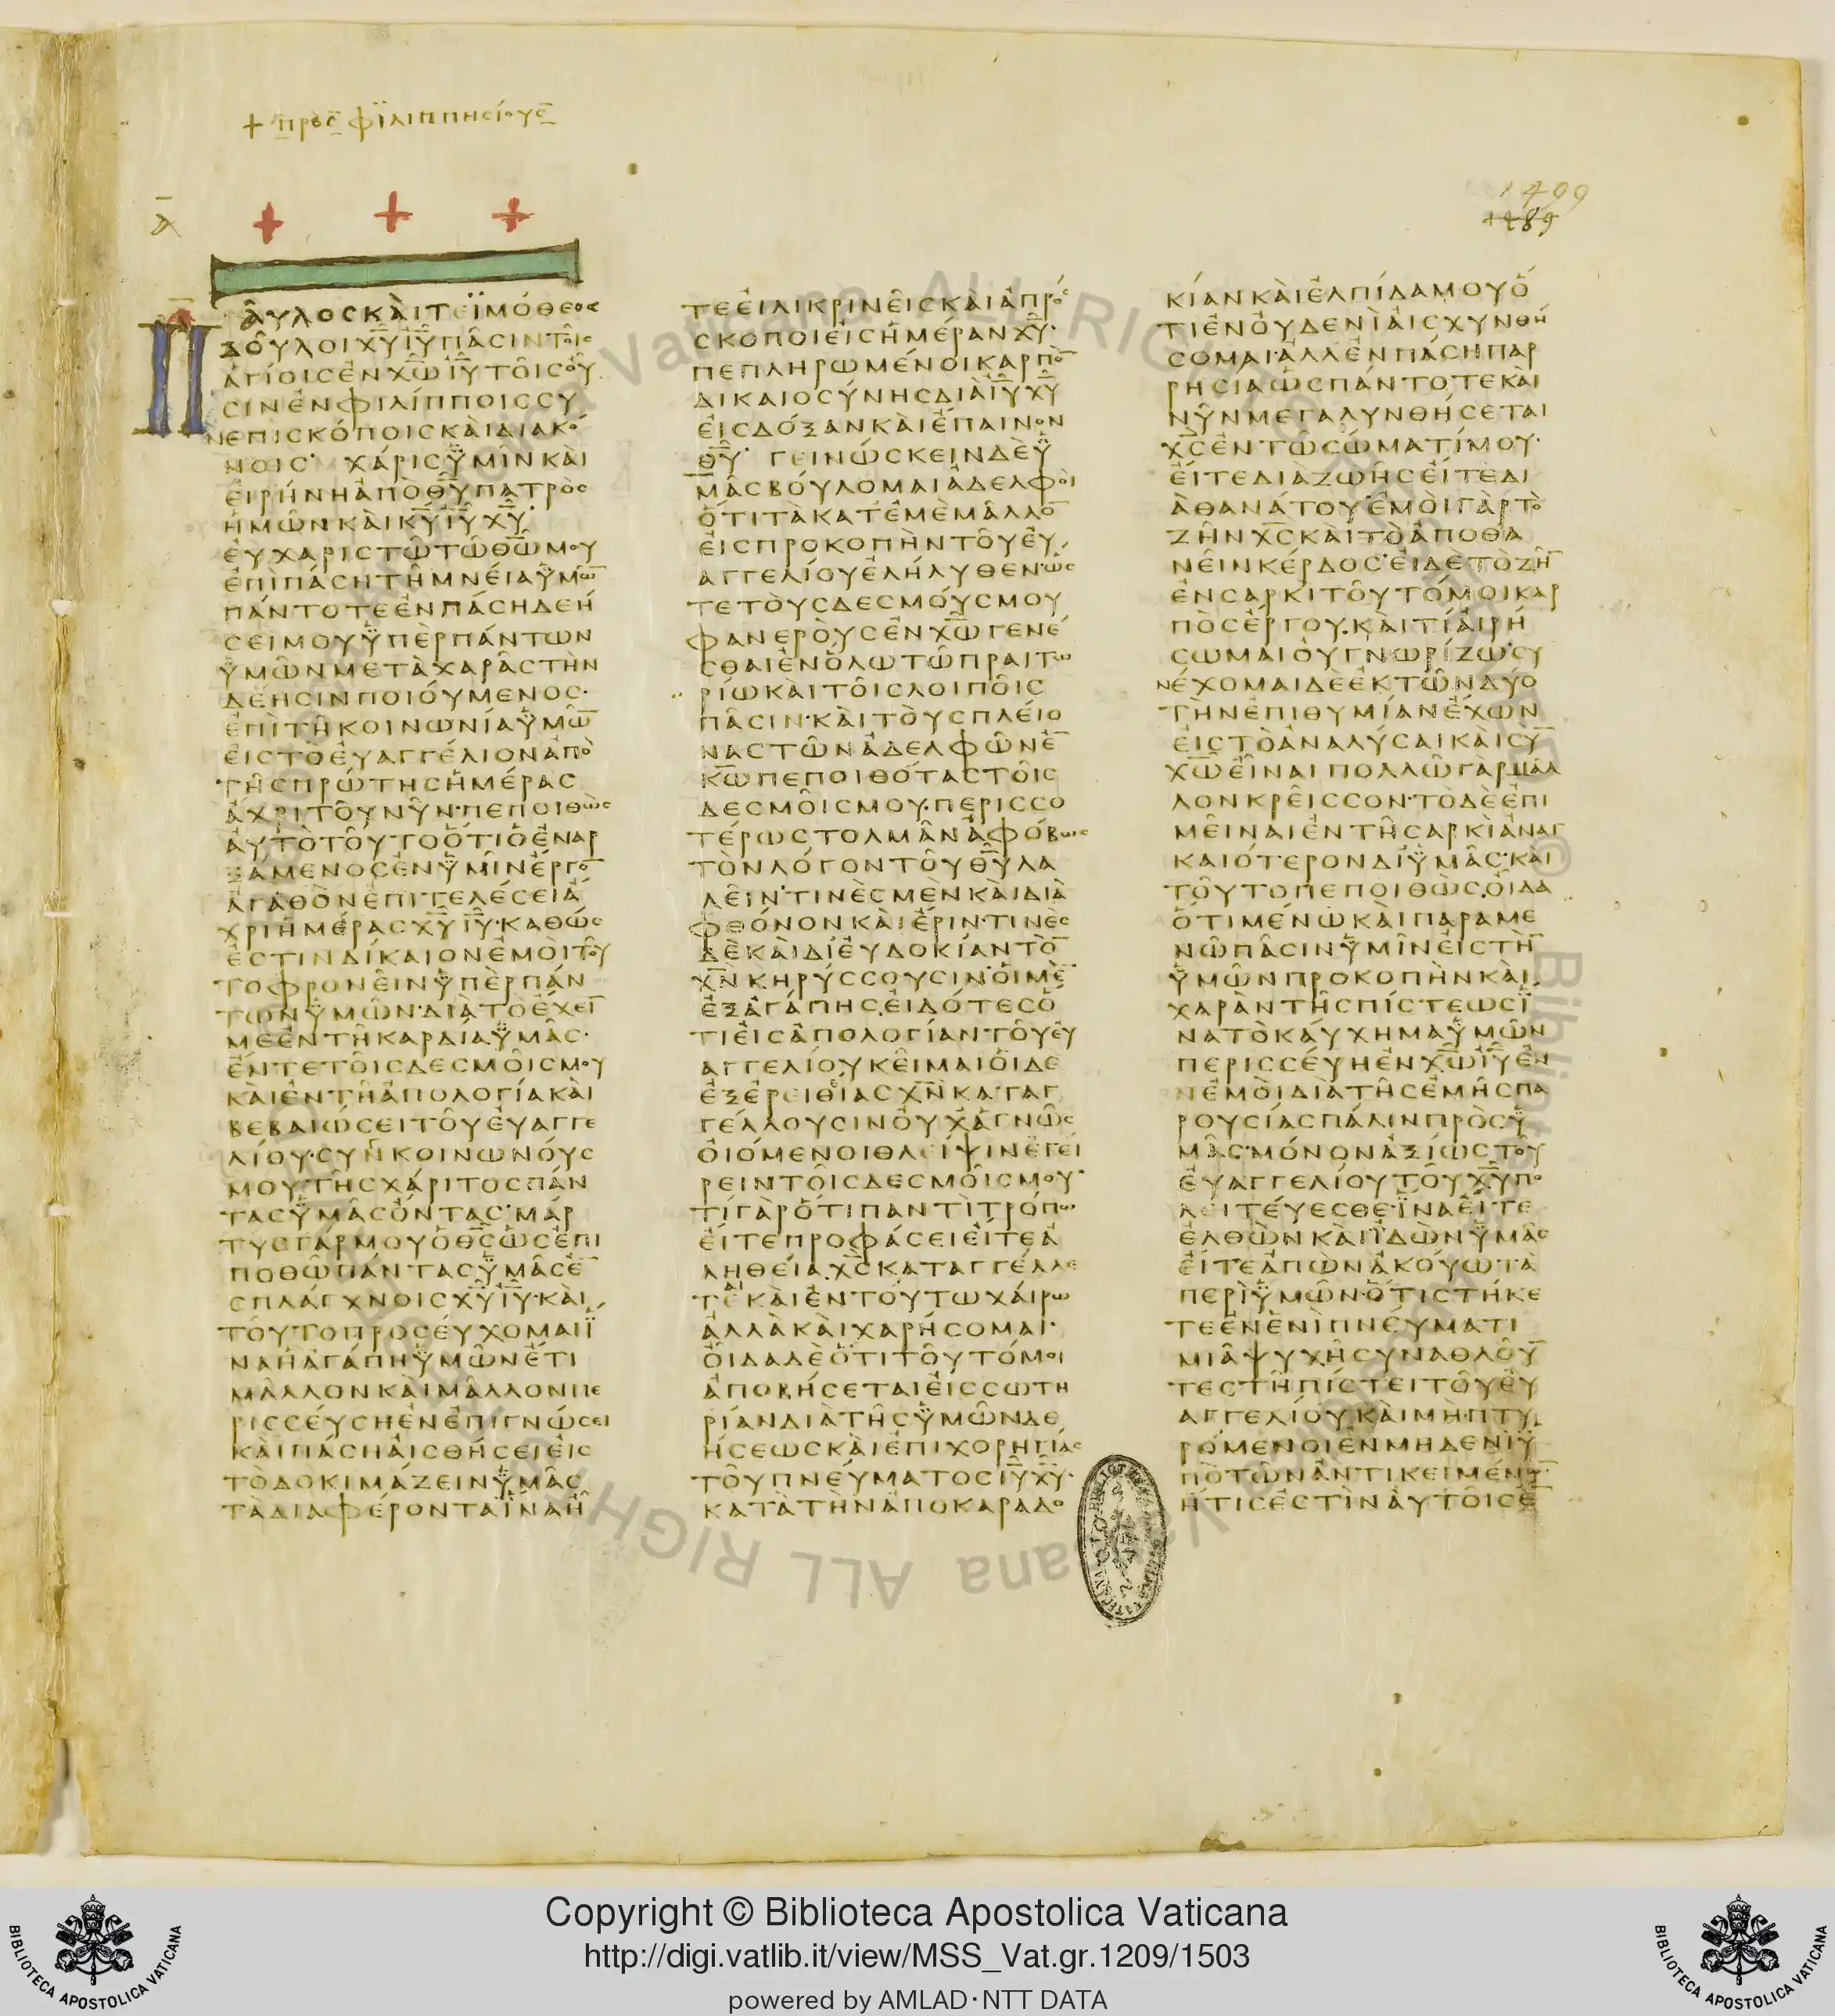 + πρὸς φϊλιππησίους
1499
1489
Α
ΠΑΥΛΟΣ ΚΑΙ ΤΕΙΜΟΘΕΟΣ
ΔΟΥΛΟΙ ΧΥ ΙΥ ΠΑΣΙΝ ΤΟΙΣ
ΑΓΙΟΙΣ ΕΝ ΧΩ ΙΥ ΤΟΙΣ ΟΥ
ΣΙΝ ΕΝ ΦΙΛΙΠΠΟΙΣ ΣΥ
Ν ΕΠΙΣΚΟΠΟΙΣ ΚΑΙ ΔΙΑΚΟ
ΝΟΙΣ· ΧΑΡΙΣ ΥΜΙΝ ΚΑΙ
ΕΙΡΗΝΗ ΑΠΟ ΘΥ ΠΑΤΡΟΣ
ΗΜΩΝ ΚΑΙ ΚΥ ΙΥ ΧΥ·
ΕΥΧΑΡΙΣΤΩ ΤΩ ΘΩ ΜΟΥ
ΕΠΙ ΠΑΣΗ ΤΗ ΜΝΕΙΑ ΥΜΩ
ΠΑΝΤΟΤΕ ΕΝ ΠΑΣΗ ΔΕΗ
ΣΕΙ ΜΟΥ ΥΠΕΡ ΠΑΝΤΩΝ
ΥΜΩΝ ΜΕΤΑ ΧΑΡΑΣ ΤΗΝ
ΔΕΗΣΙΝ ΠΟΙΟΥΜΕΝΟΣ·
ΕΠΙ ΤΗ ΚΟΙΝΩΝΙΑ ΥΜΩ
ΕΙΣ ΤΟ ΕΥΑΓΓΕΛΙΟΝ ΑΠΟ
ΤΗΣ ΠΡΩΤΗΣ ΗΜΕΡΑΣ
ΑΧΡΙ ΤΟΥ ΝΥΝ· ΠΕΠΟΙΘΩΣ
ΑΥΤΟ ΤΟΥΤΟ ΟΤΙ Ο ΕΝΑΡ
ΞΑΜΕΝΟΣ ΕΝ ΥΜΙΝ ΕΡΓΟ
ΑΓΑΘΟΝ ΕΠΙΤΕΛΕΣΕΙ Α
ΧΡΙ ΗΜΕΡΑΣ ΧΥ ΙΥ· ΚΑΘΩΣ
ΕΣΤΙΝ ΔΙΚΑΙΟΝ ΕΜΟΙ ΤΟΥ
ΤΟ ΦΡΟΝΕΙΝ ΥΠΕΡ ΠΑΝ
ΤΩΝ ΥΜΩΝ· ΔΙΑ ΤΟ ΕΧΕΙ
ΜΕ ΕΝ ΤΗ ΚΑΡΔΙΑ ΥΜΑΣ·
ΕΝ ΤΕ ΤΟΙΣ ΔΕΣΜΟΙΣ ΜΟΥ
ΚΑΙ ΕΝ ΤΗ ΑΠΟΛΟΓΙΑ ΚΑΙ
ΒΕΒΑΙΩΣΕΙ ΤΟΥ ΕΥΑΓΓΕ
ΛΙΟΥ· ΣΥΝΚΟΙΝΩΝΟΥΣ
ΜΟΥ ΤΗΣ ΧΑΡΙΤΟΣ ΠΑΝ
ΤΑΣ ΥΜΑΣ ΟΝΤΑΣ· ΜΑΡ
ΤΥΣ ΓΑΡ ΜΟΥ Ο ΘΣ ΩΣ ΕΠΙ
ΠΟΘΩ ΠΑΝΤΑΣ ΥΜΑΣ Ε
ΣΠΛΑΓΧΝΟΙΣ ΧΥ ΙΥ· ΚΑΙ
ΤΟΥΤΟ ΠΡΟΣΕΥΧΟΜΑΙ Ϊ
ΝΑ Η ΑΓΑΠΗ ΥΜΩΝ ΕΤΙ
ΜΑΛΛΟΝ ΚΑΙ ΜΑΛΛΟΝ ΠΕ
ΡΙΣΣΕΥΣΗ ΕΝ ΕΠΙΓΝΩΣΕΙ
ΚΑΙ ΠΑΣΗ ΑΙΣΘΗΣΕΙ ΕΙΣ
ΤΟ ΔΟΚΙΜΑΖΕΙΝ ΥΜΑΣ
ΤΑ ΔΙΑΦΕΡΟΝΤΑ ΪΝΑ Η
ΤΕ ΕΙΛΙΚΡΙΝΕΙΣ ΚΑΙ ΑΠΡΟΣ
ΣΚΟΠΟΙ ΕΙΣ ΗΜΕΡΑΝ ΧΥ·
ΠΕΠΛΗΡΩΜΕΝΟΙ ΚΑΡΠΟ
ΔΙΚΑΙΟΣΥΝΗΣ ΔΙΑ ΙΥ ΧΥ
ΕΙΣ ΔΟΞΑΝ ΚΑΙ ΕΠΑΙΝΟΝ
ΘΥ· ΓΕΙΝΩΣΚΕΙΝ ΔΕ Υ
ΜΑΣ ΒΟΥΛΟΜΑΙ ΑΔΕΛΦΟΙ
ΟΤΙ ΤΑ ΚΑΤ ΕΜΕ ΜΑΛΛΟ
ΕΙΣ ΠΡΟΚΟΠΗΝ ΤΟΥ ΕΥ
ΑΓΓΕΛΙΟΥ ΕΛΗΛΥΘΕΝ ΩΣ
ΤΕ ΤΟΥΣ ΔΕΣΜΟΥΣ ΜΟΥ
ΦΑΝΕΡΟΥΣ ΕΝ ΧΩ ΓΕΝΕ
ΣΘΑΙ ΕΝ ΟΛΩ ΤΩ ΠΡΑΙΤΩ
ΡΙΩ ΚΑΙ ΤΟΙΣ ΛΟΙΠΟΙΣ
ΠΑΣΙΝ· ΚΑΙ ΤΟΥΣ ΠΛΕΙΟ
ΝΑΣ ΤΩΝ ΑΔΕΛΦΩΝ Ε
ΚΩ ΠΕΠΟΙΘΟΤΑΣ ΤΟΙΣ
ΔΕΣΜΟΙΣ ΜΟΥ· ΠΕΡΙΣΣΟ
ΤΕΡΩΣ ΤΟΛΜΑΝ ΑΦΟΒΩΣ
ΤΟΝ ΛΟΓΟΝ ΤΟΥ ΘΥ ΛΑ
ΛΕΙΝ· ΤΙΝΕΣ ΜΕΝ ΚΑΙ ΔΙΑ
ΦΘΟΝΟΝ ΚΑΙ ΕΡΙΝ· ΤΙΝΕΣ
ΔΕ ΚΑΙ ΔΙ ΕΥΔΟΚΙΑΝ ΤΟ
ΧΝ ΚΗΡΥΣΣΟΥΣΙΝ· ΟΙ ΜΕ
ΕΞ ΑΓΑΠΗΣ, ΕΙΔΟΤΕΣ Ο
ΤΙ ΕΙΣ ΑΠΟΛΟΓΙΑΝ ΤΟΥ ΕΥ
ΑΓΓΕΛΙΟΥ ΚΕΙΜΑΙ ΟΙ ΔΕ
ΕΞ ΕΡΕΙΘΙΑΣ ΧΝ ΚΑΤΑΓ
ΓΕΛΛΟΥΣΙΝ ΟΥΧ ΑΓΝΩΣ
ΟΙΟΜΕΝΟΙ ΘΛΕΙΨΙΝ ΕΓΕΙ
ΡΕΙΝ ΤΟΙΣ ΔΕΣΜΟΙΣ ΜΟΥ·
ΤΙ ΓΑΡ ΟΤΙ ΠΑΝΤΙ ΤΡΟΠΩ
ΕΙΤΕ ΠΡΟΦΑΣΕΙ ΕΙΤΕ Α
ΛΗΘΕΙΑ ΧΣ ΚΑΤΑΓΓΕΛΛΕ
ΤΕ ΚΑΙ ΕΝ ΤΟΥΤΩ ΧΑΙΡΩ
ΑΛΛΑ ΚΑΙ ΧΑΡΗΣΟΜΑΙ·
ΟΙΔΑ ΔΕ ΟΤΙ ΤΟΥΤΟ ΜΟΙ
ΑΠΟΒΗΣΕΤΑΙ ΕΙΣ ΣΩΤΗ
ΡΙΑΝ ΔΙΑ ΤΗΣ ΥΜΩΝ ΔΕ
ΗΣΕΩΣ ΚΑΙ ΕΠΙΧΟΡΗΓΙΑΣ
ΤΟΥ ΠΝΕΥΜΑΤΟΣ ΙΥ ΧΥ·
ΚΑΤΑ ΤΗΝ ΑΠΟΚΑΡΑΔΟ
ΚΙΑΝ ΚΑΙ ΕΛΠΙΔΑ ΜΟΥ Ο
ΤΙ ΕΝ ΟΥΔΕΝΙ ΑΙΣΧΥΝΘΗ
ΣΟΜΑΙ· ΑΛΛ ΕΝ ΠΑΣΗ ΠΑΡ
ΡΗΣΙΑ ΩΣ ΠΑΝΤΟΤΕ ΚΑΙ
ΝΥΝ ΜΕΓΑΛΥΝΘΗΣΕΤΑΙ
ΧΣ ΕΝ ΤΩ ΣΩΜΑΤΙ ΜΟΥ·
ΕΙΤΕ ΔΙΑ ΖΩΗΣ ΕΙΤΕ ΔΙ
Α ΘΑΝΑΤΟΥ· ΕΜΟΙ ΓΑΡ ΤΟ
ΖΗΝ ΧΣ ΚΑΙ ΤΟ ΑΠΟΘΑ
ΝΕΙΝ ΚΕΡΔΟΣ· ΕΙ ΔΕ ΤΟ ΖΗ
ΕΝ ΣΑΡΚΙ ΤΟΥΤΟ ΜΟΙ ΚΑΡ
ΠΟΣ ΕΡΓΟΥ, ΚΑΙ ΤΙ ΑΙΡΗ
ΣΩΜΑΙ ΟΥ ΓΝΩΡΙΖΩ· ΣΥ
ΝΕΧΟΜΑΙ ΔΕ ΕΚ ΤΩΝ ΔΥΟ
ΤΗΝ ΕΠΙΘΥΜΙΑΝ ΕΧΩΝ
ΕΙΣ ΤΟ ΑΝΑΛΥΣΑΙ ΚΑΙ ΣΥ
ΧΩ ΕΙΝΑΙ ΠΟΛΛΩ ΓΑΡ ΜΑΛ
ΛΟΝ ΚΡΕΙΣΣΟΝ· ΤΟ ΔΕ ΕΠΙ
ΜΕΙΝΑΙ ΕΝ ΤΗ ΣΑΡΚΙ ΑΝΑΓ
ΚΑΙΟΤΕΡΟΝ ΔΙ ΥΜΑΣ· ΚΑΙ
ΤΟΥΤΟ ΠΕΠΟΙΘΩΣ, ΟΙΔΑ
ΟΤΙ ΜΕΝΩ ΚΑΙ ΠΑΡΑΜΕ
ΝΩ ΠΑΣΙΝ ΥΜΙΝ ΕΙΣ ΤΗ
ΥΜΩΝ ΠΡΟΚΟΠΗΝ ΚΑΙ
ΧΑΡΑΝ ΤΗΣ ΠΙΣΤΕΩΣ Ϊ
ΝΑ ΤΟ ΚΑΥΧΗΜΑ ΥΜΩΝ
ΠΕΡΙΣΣΕΥΗ ΕΝ ΧΩ ΙΥ ΕΝ
ΝΕΜΟΙ ΔΙΑ ΤΗΣ ΕΜΗΣ ΠΑ
ΡΟΥΣΙΑΣ ΠΑΛΙΝ ΠΡΟΣ Υ
ΜΑΣ· ΜΟΝΟΝ ΑΞΙΩΣ ΤΟΥ
ΕΥΑΓΓΕΛΙΟΥ ΤΟΥ ΧΥ ΠΟ
ΛΕΙΤΕΥΕΣΘΕ· ΪΝΑ ΕΙΤΕ
ΕΛΘΩΝ ΚΑΙ ΪΔΩΝ ΥΜΑΣ
ΕΙΤΕ ΑΠΩΝ ΑΚΟΥΩ ΤΑ
ΠΕΡΙ ΥΜΩΝ· ΟΤΙ ΣΤΗΚΕ
ΤΕ ΕΝ ΕΝΙ ΠΝΕΥΜΑΤΙ
ΜΙΑ ΨΥΧΗ ΣΥΝΑΘΛΟΥ
ΤΕΣ ΤΗ ΠΙΣΤΕΙ ΤΟΥ ΕΥ
ΑΓΓΕΛΙΟΥ, ΚΑΙ ΜΗ ΠΤΥ
ΡΟΜΕΝΟΙ ΕΝ ΜΗΔΕΝΙ Υ
ΠΟ ΤΩΝ ΑΝΤΙΚΕΙΜΕΝΩ·
ΗΤΙΣ ΕΣΤΙΝ ΑΥΤΟΙΣ Ε
Copyright © Biblioteca Apostolica Vaticana
http://digi.vatlib.it/view/MSS_Vat.gr.1209/1503
powered by AMLAD·NTT DATA
BIBLIOTECA APOSTOLICA VATICANA
BIBLIOTECA APOSTOLICA VATICANA